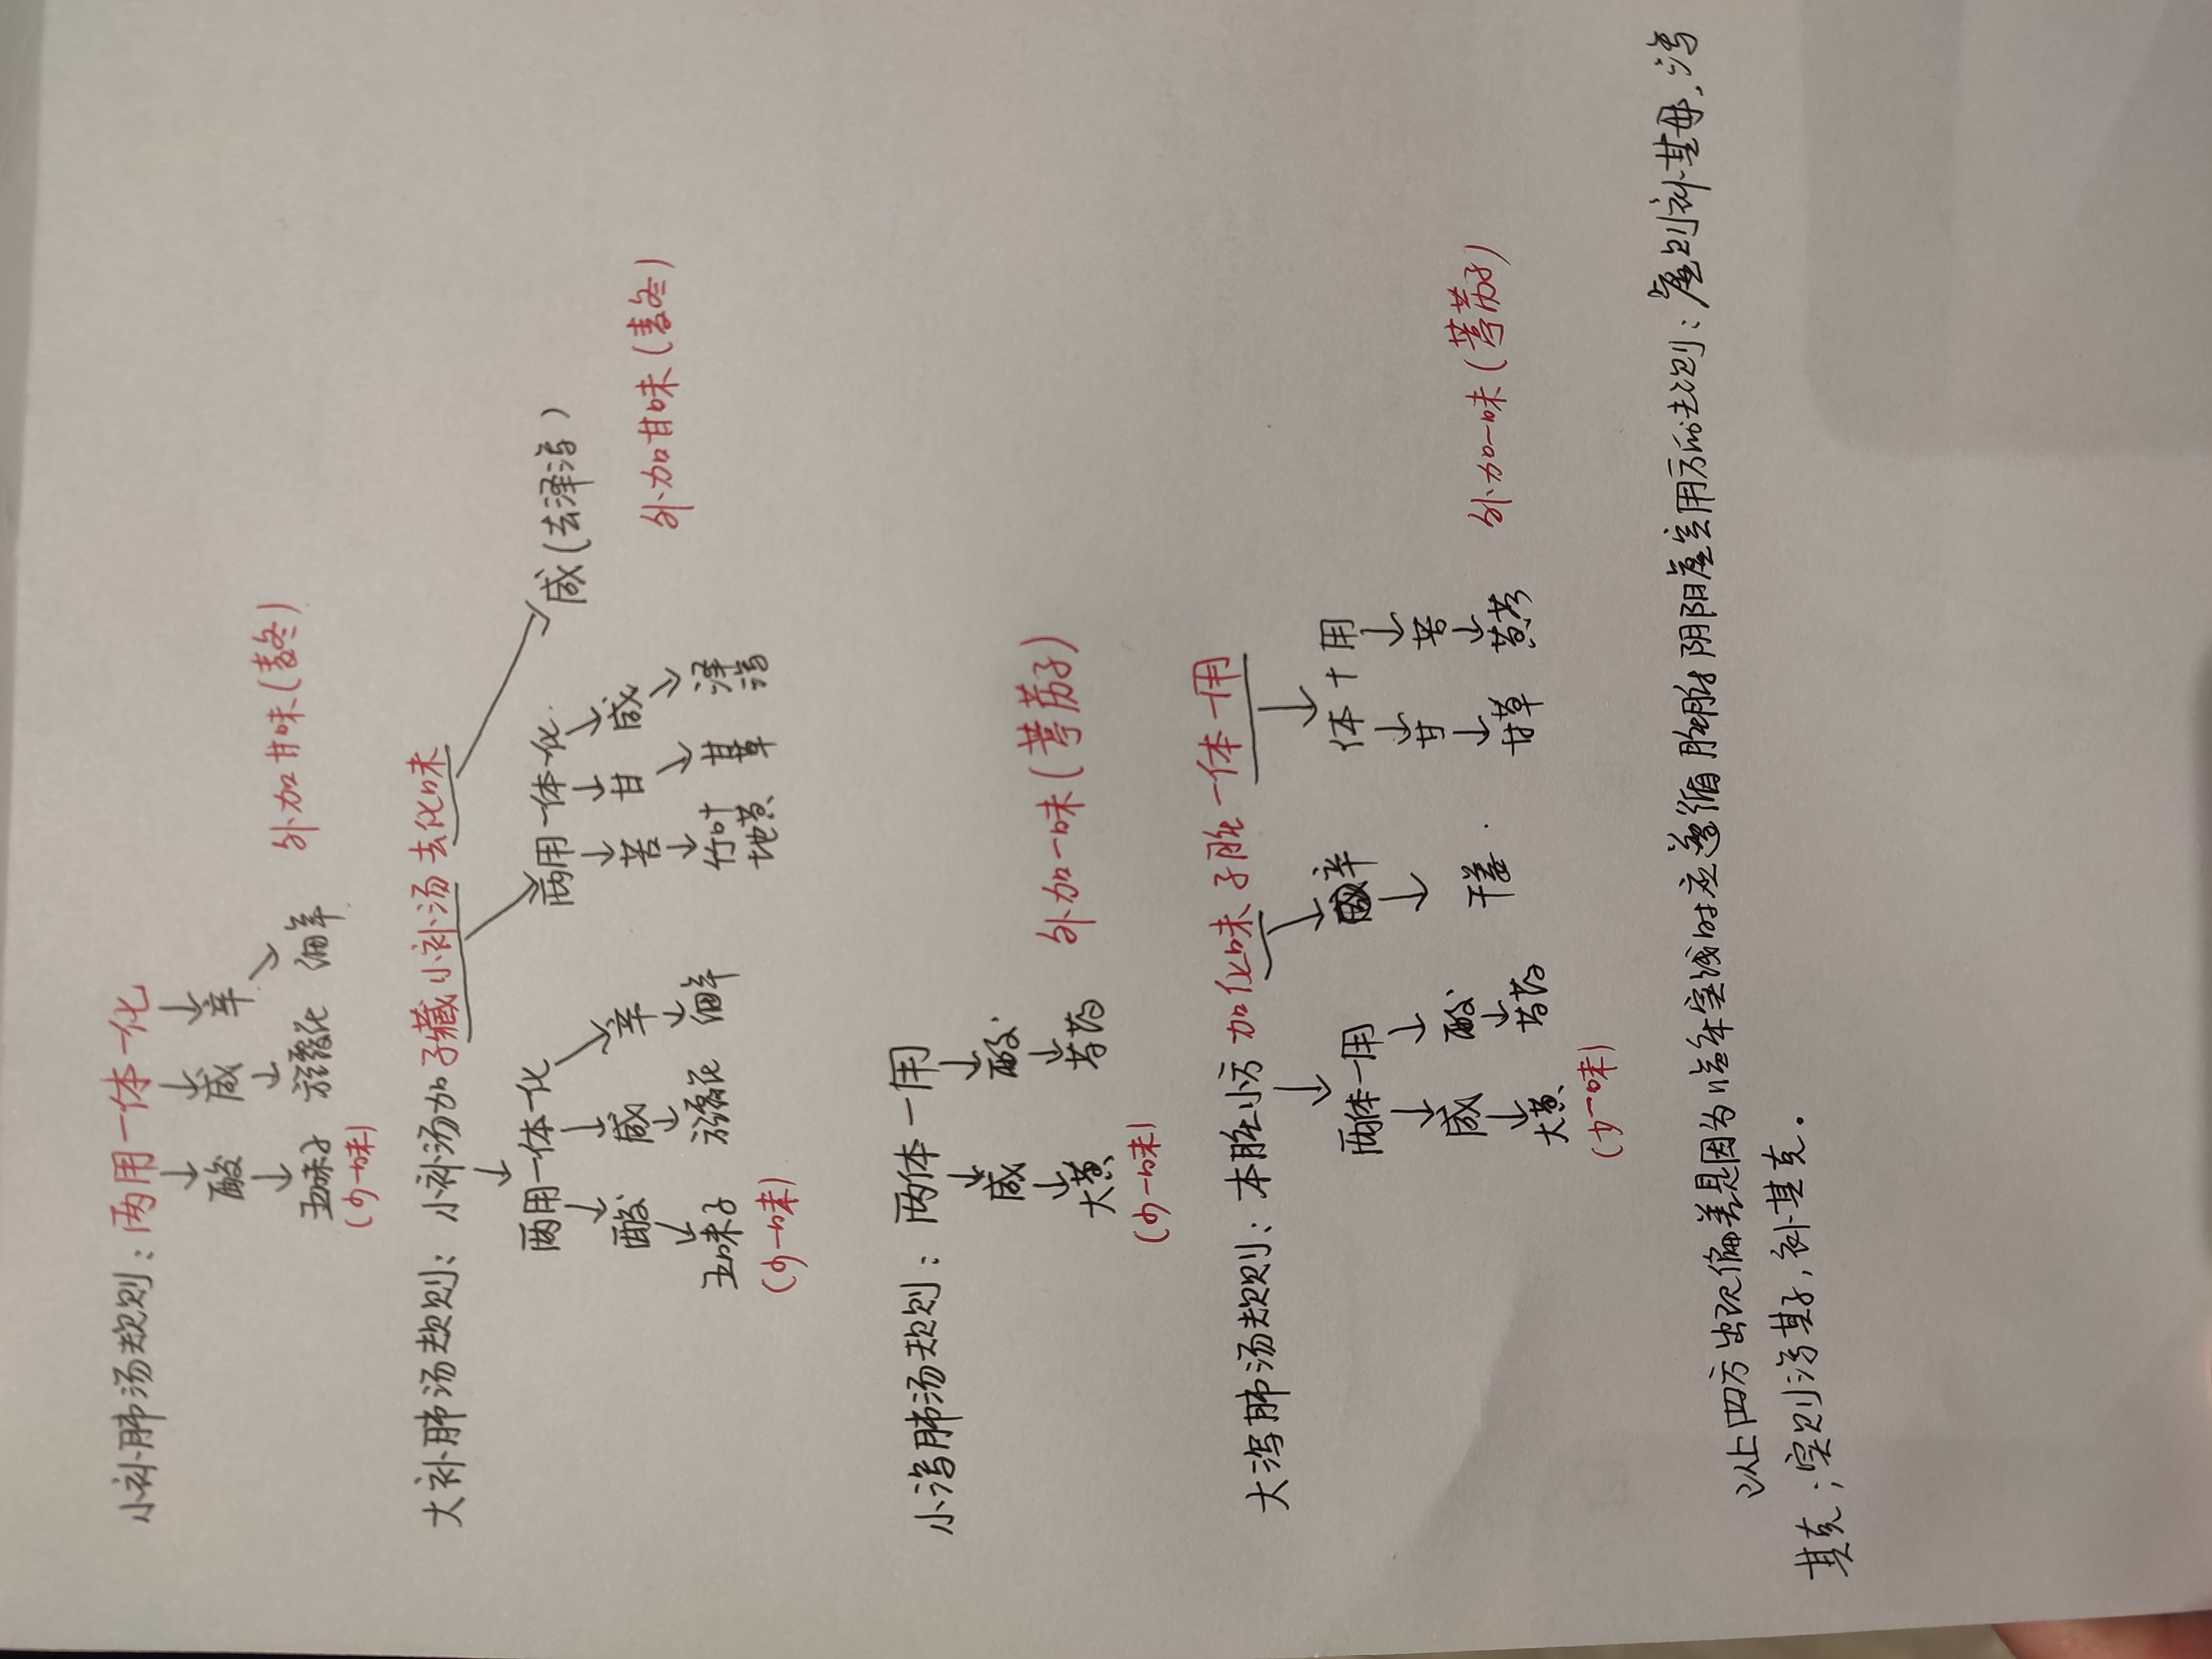 小补肺汤规则：两用一体一化
酸 咸 辛
五味子 旋覆花 细辛
(少一味)
外加甘味(麦冬)
大补肺汤规则：小补汤加子藏小补汤去化味
两用一体一化 两用一体一化 咸(去泽泻)
酸 咸 辛 苦 甘 咸
五味子 旋覆花 细辛 竹叶 甘草 泽泻
地黄
(少一味)
外加甘味(麦冬)
小泻肺汤规则：两体一用
咸 酸
大黄 芍药
(少一味)
外加一味(葶苈子)
大泻肺汤规则：本脏小方加化味子脏一体一用
两体一用 辛 体+用
咸 酸 甘 苦
大黄 芍药 干姜 甘草 黄芩
(少一味)
外加一味(葶苈子)
以上四方出现偏差是因为临车实践时应遵循脏腑阴阳虚实用方所法则：虚则补其母，泻
其克；实则泻其子，补其克。